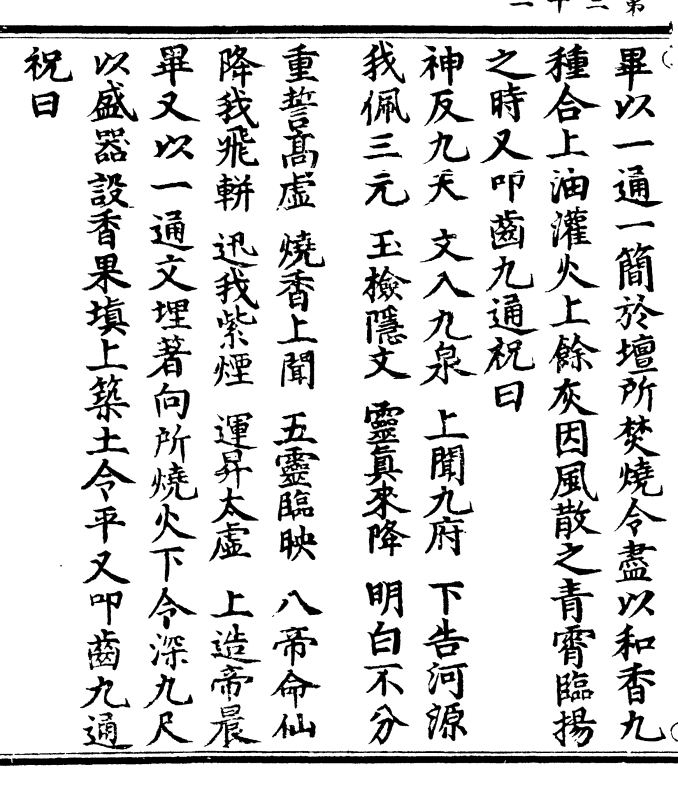 畢以一通一簡於壇所焚燒令盡以和香九
種合上油灌火上餘灰因風散之青霄臨揚
之時又叩齒九通祝曰
神反九天 文入九泉 上聞九府 下告河源
我佩三元 玉檢隱文 靈真來降 明白不分
重誓髙虛 燒香上聞 五靈臨映 八帝命仙
降我飛輧 迅我紫煙 運昇太虛 上造帝晨
畢又以一通文埋著向所燒火下令深九尺
以盛器設香果填上築土令平又叩齒九通
祝曰